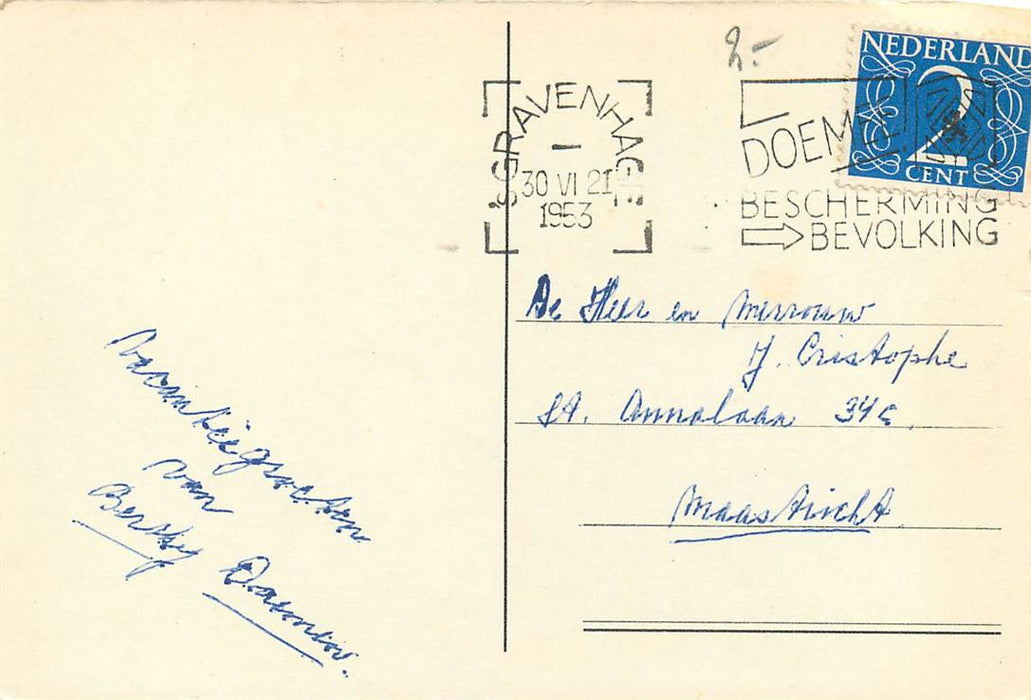 2.-
NEDERLAND
2
CENT
'S GRAVENHAGE
30 VI 21
1953
DOE MEE
BESCHERMING
BEVOLKING
De Heer en Mevrouw
J. Cristophe
St. Annalaan 34c.
Maastricht
Vacantiegroeten
van
Berthy Daemen.